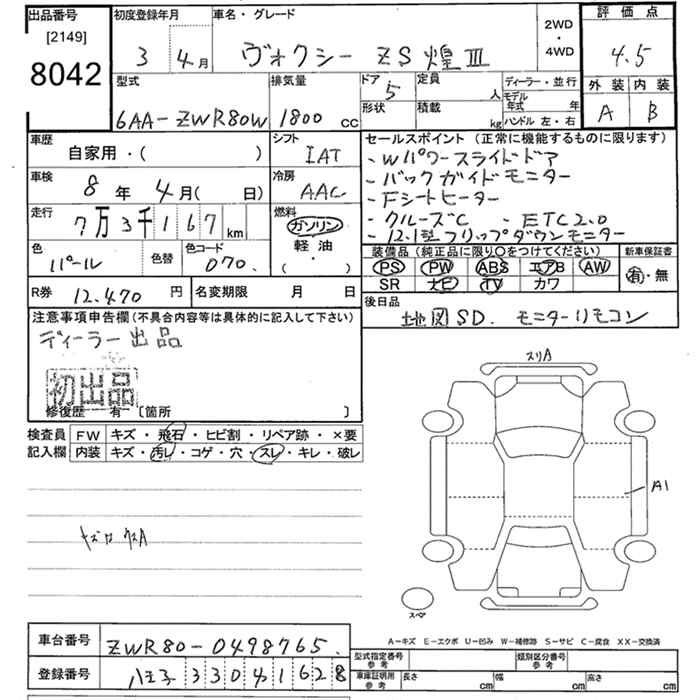 出品番号 初度登録年月 車名・グレード 2WD・4WD 評価点
[2149]
8042
3 4月 ヴォクシー ZS 煌Ⅲ 4.5
型式 排気量 ドア 5 定員 人 ディーラー・並行 外装 内装
6AA-ZWR80W 1800 cc 形状 積載 kg モデル年式 年 A B
ハンドル 左・右
車歴 シフト セールスポイント (正常に機能するものに限ります)
自家用・( ) IAT
-Wパワースライドドア
-バックガイドモニター
-Fシートヒーター
-クルーズC -ETC2.0
-12.1型フリップダウンモニター
車検 8年 4月( 日) 冷房 AAC
走行 7万3千167km 燃料 ガソリン
軽油・( )
色 パール 色替 色コード 070.
装備品 (純正品に限り○をつけてください) 新車保証書
PS PW ABS エアB AW 有・無
SR ナビ TV カワ
R券 12.470円 名変期限 月 日
後日品
地図SD. モニターリモコン
注意事項申告欄(不具合内容等は具体的に記入して下さい)
ディーラー出品
初出品
修復歴 有 [箇所 ]
検査員 FW キズ・飛石・ヒビ割・リペア跡・×要
記入欄 内装 キズ・汚レ・コゲ・穴・スレ・キレ・破レ
スリA
A1
スペア
A-キズ E-エクボ U-凹み W-補修跡 S-サビ C-腐食 XX-交換済
車台番号 ZWR80-0498765.
登録番号 八王子 330 や 1628
型式指定番号 参考 類別区分番号 参考
車庫証明用 参考 長さ cm 幅 cm 高さ cm